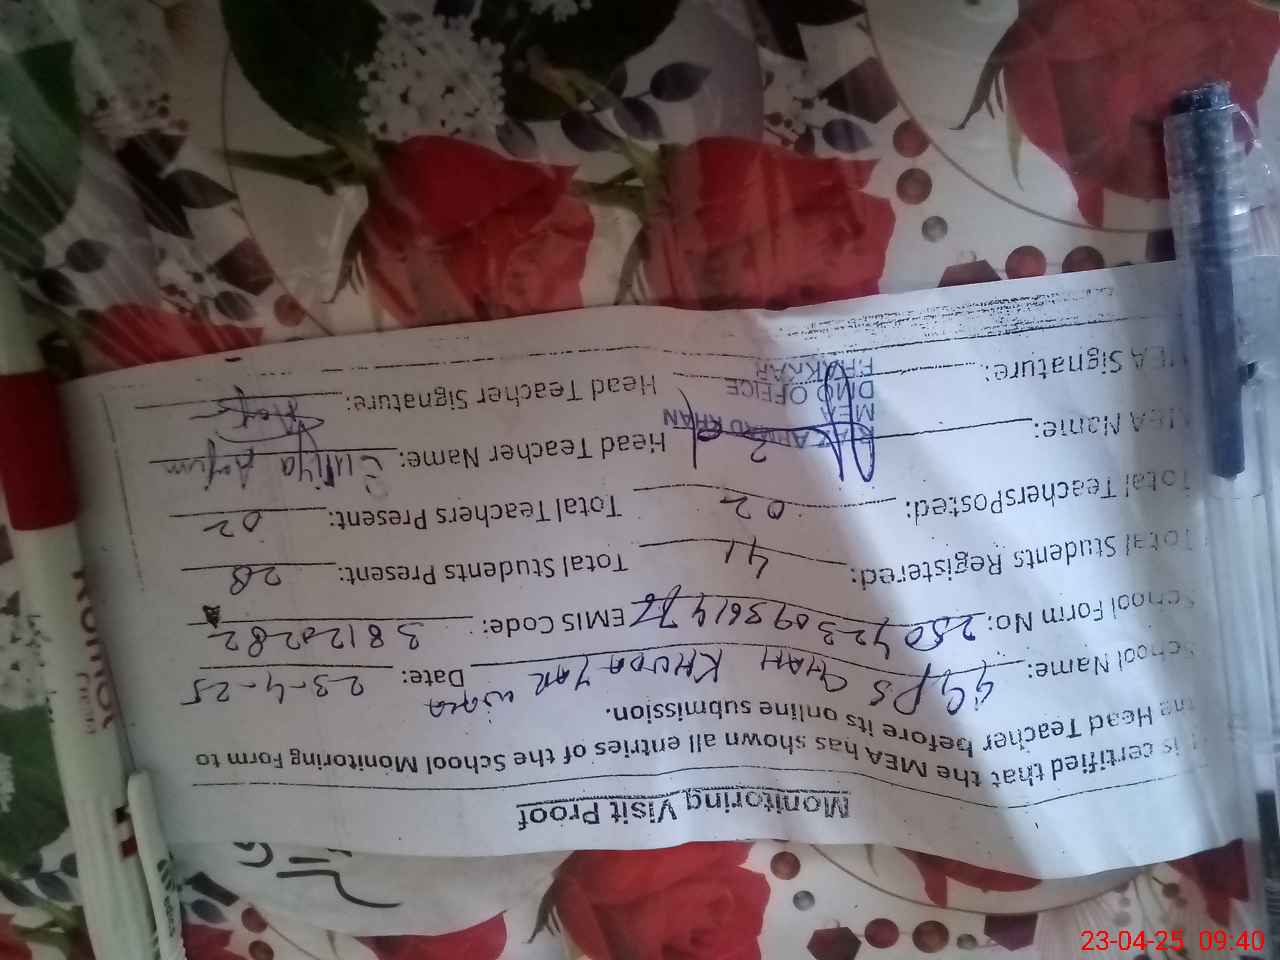 Monitoring Visit Proof
It is certified that the MEA has shown all entries of the School Monitoring Form to
the Head Teacher before its online submission.
School Name: GGPS GHAH KHUDA YAR Date: 23-4-25
School Form No: EMIS Code: 38120282
Total Students Registered: 41 Total Students Present: 28
Total TeachersPosted: 02 Total Teachers Present: 02
MEA Name: Head Teacher Name:
KHAN
MEA
DMO OFFICE
MEA Signature: Head Teacher Signature:
23-04-25 09:40